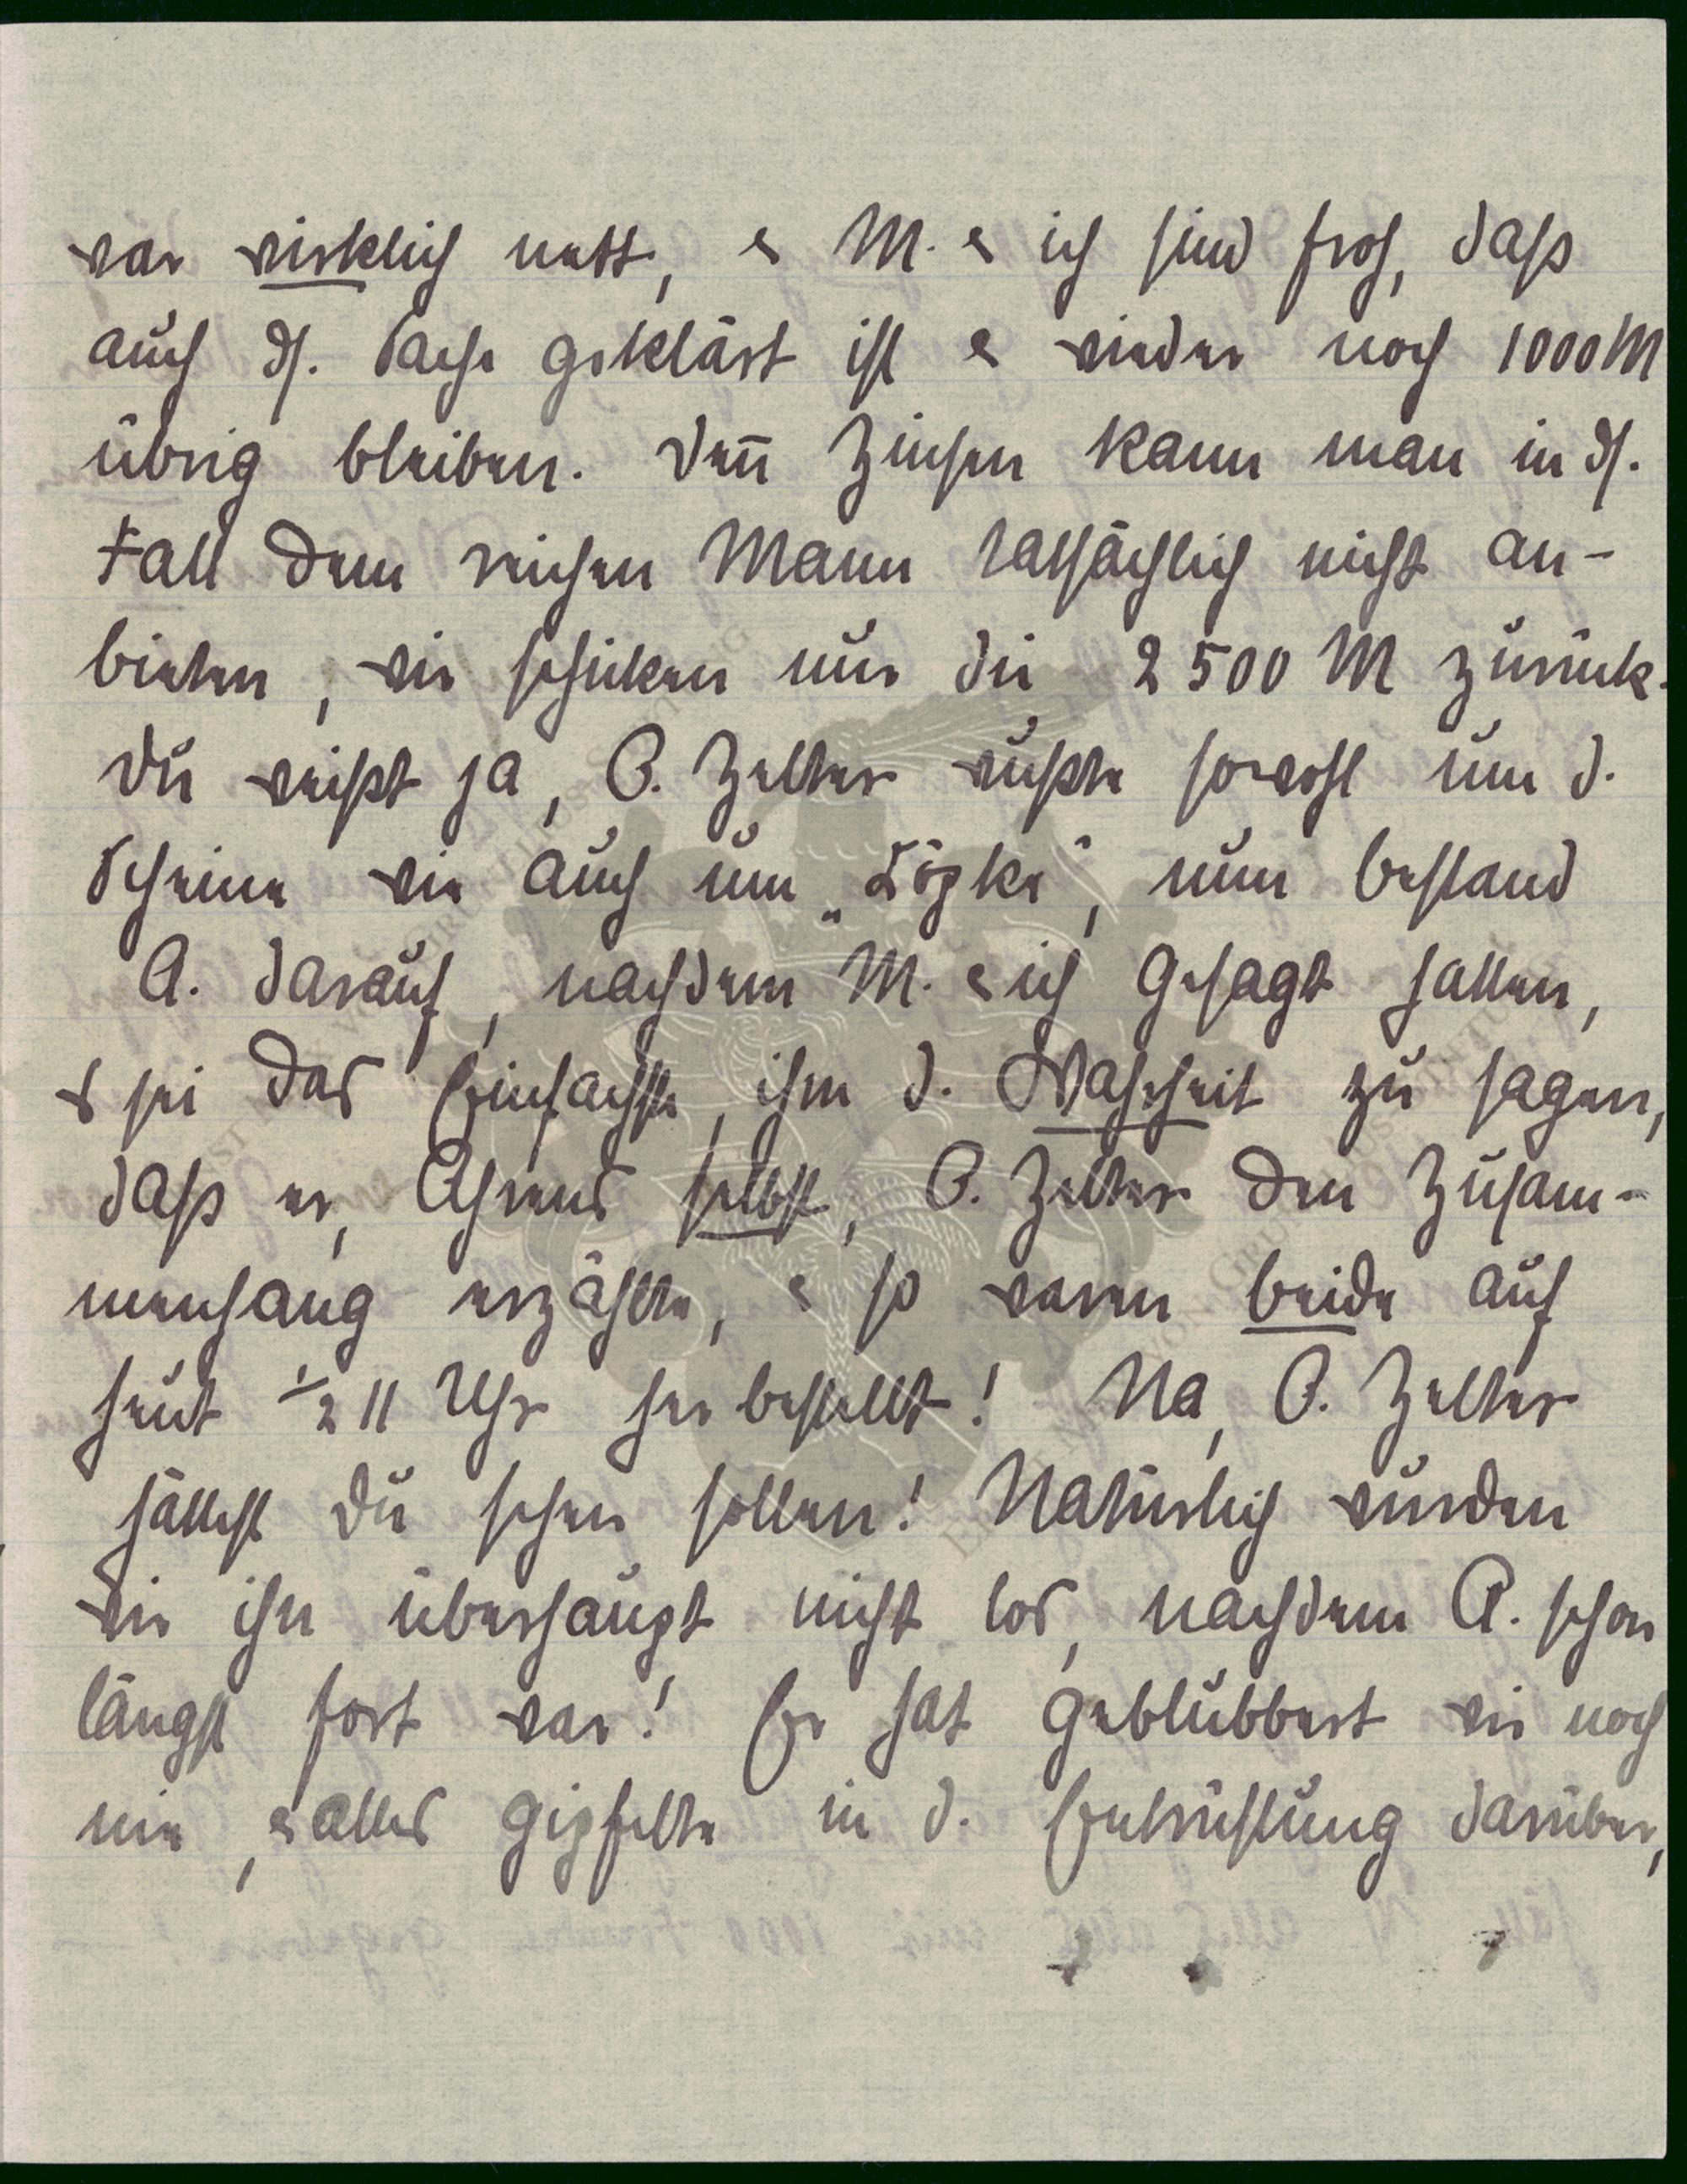 war wirklich nett, & M. & ich sind froh, daß
auch ds. Sache geklärt ist & wieder noch 1000 M
übrig bleiben. Denn Zinsen kann man in ds.
Fall dem reichen Mann tatsächlich nicht an-
bieten, wir schicken nur die 2500 M zurück.
Du weißt ja, O. Zelter wußte sowohl um d.
Scheine wie auch um „Töpke“, nun bestand
A. darauf, nachdem M. & ich gesagt hatten,
es sei das Einfachste, ihm d. Wahrheit zu sagen,
daß er, Ahrens selbst, O. Zelter den Zusam-
menhang erzählte, & so waren beide auf
heut ½ 11 Uhr her bestellt! Na, O. Zelter
hättest Du sehen sollen! Natürlich wurden
wir ihn überhaupt nicht los, nachdem A. schon
längst fort war! Er hat geblubbert wie noch
nie, & alles gipfelte in d. Entrüstung darüber,